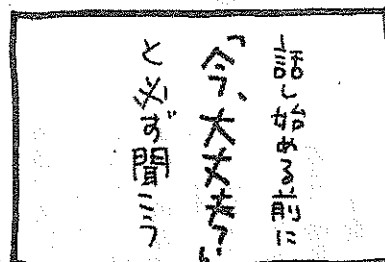 話し始める前に
「今、大丈夫?」
と必ず聞こう